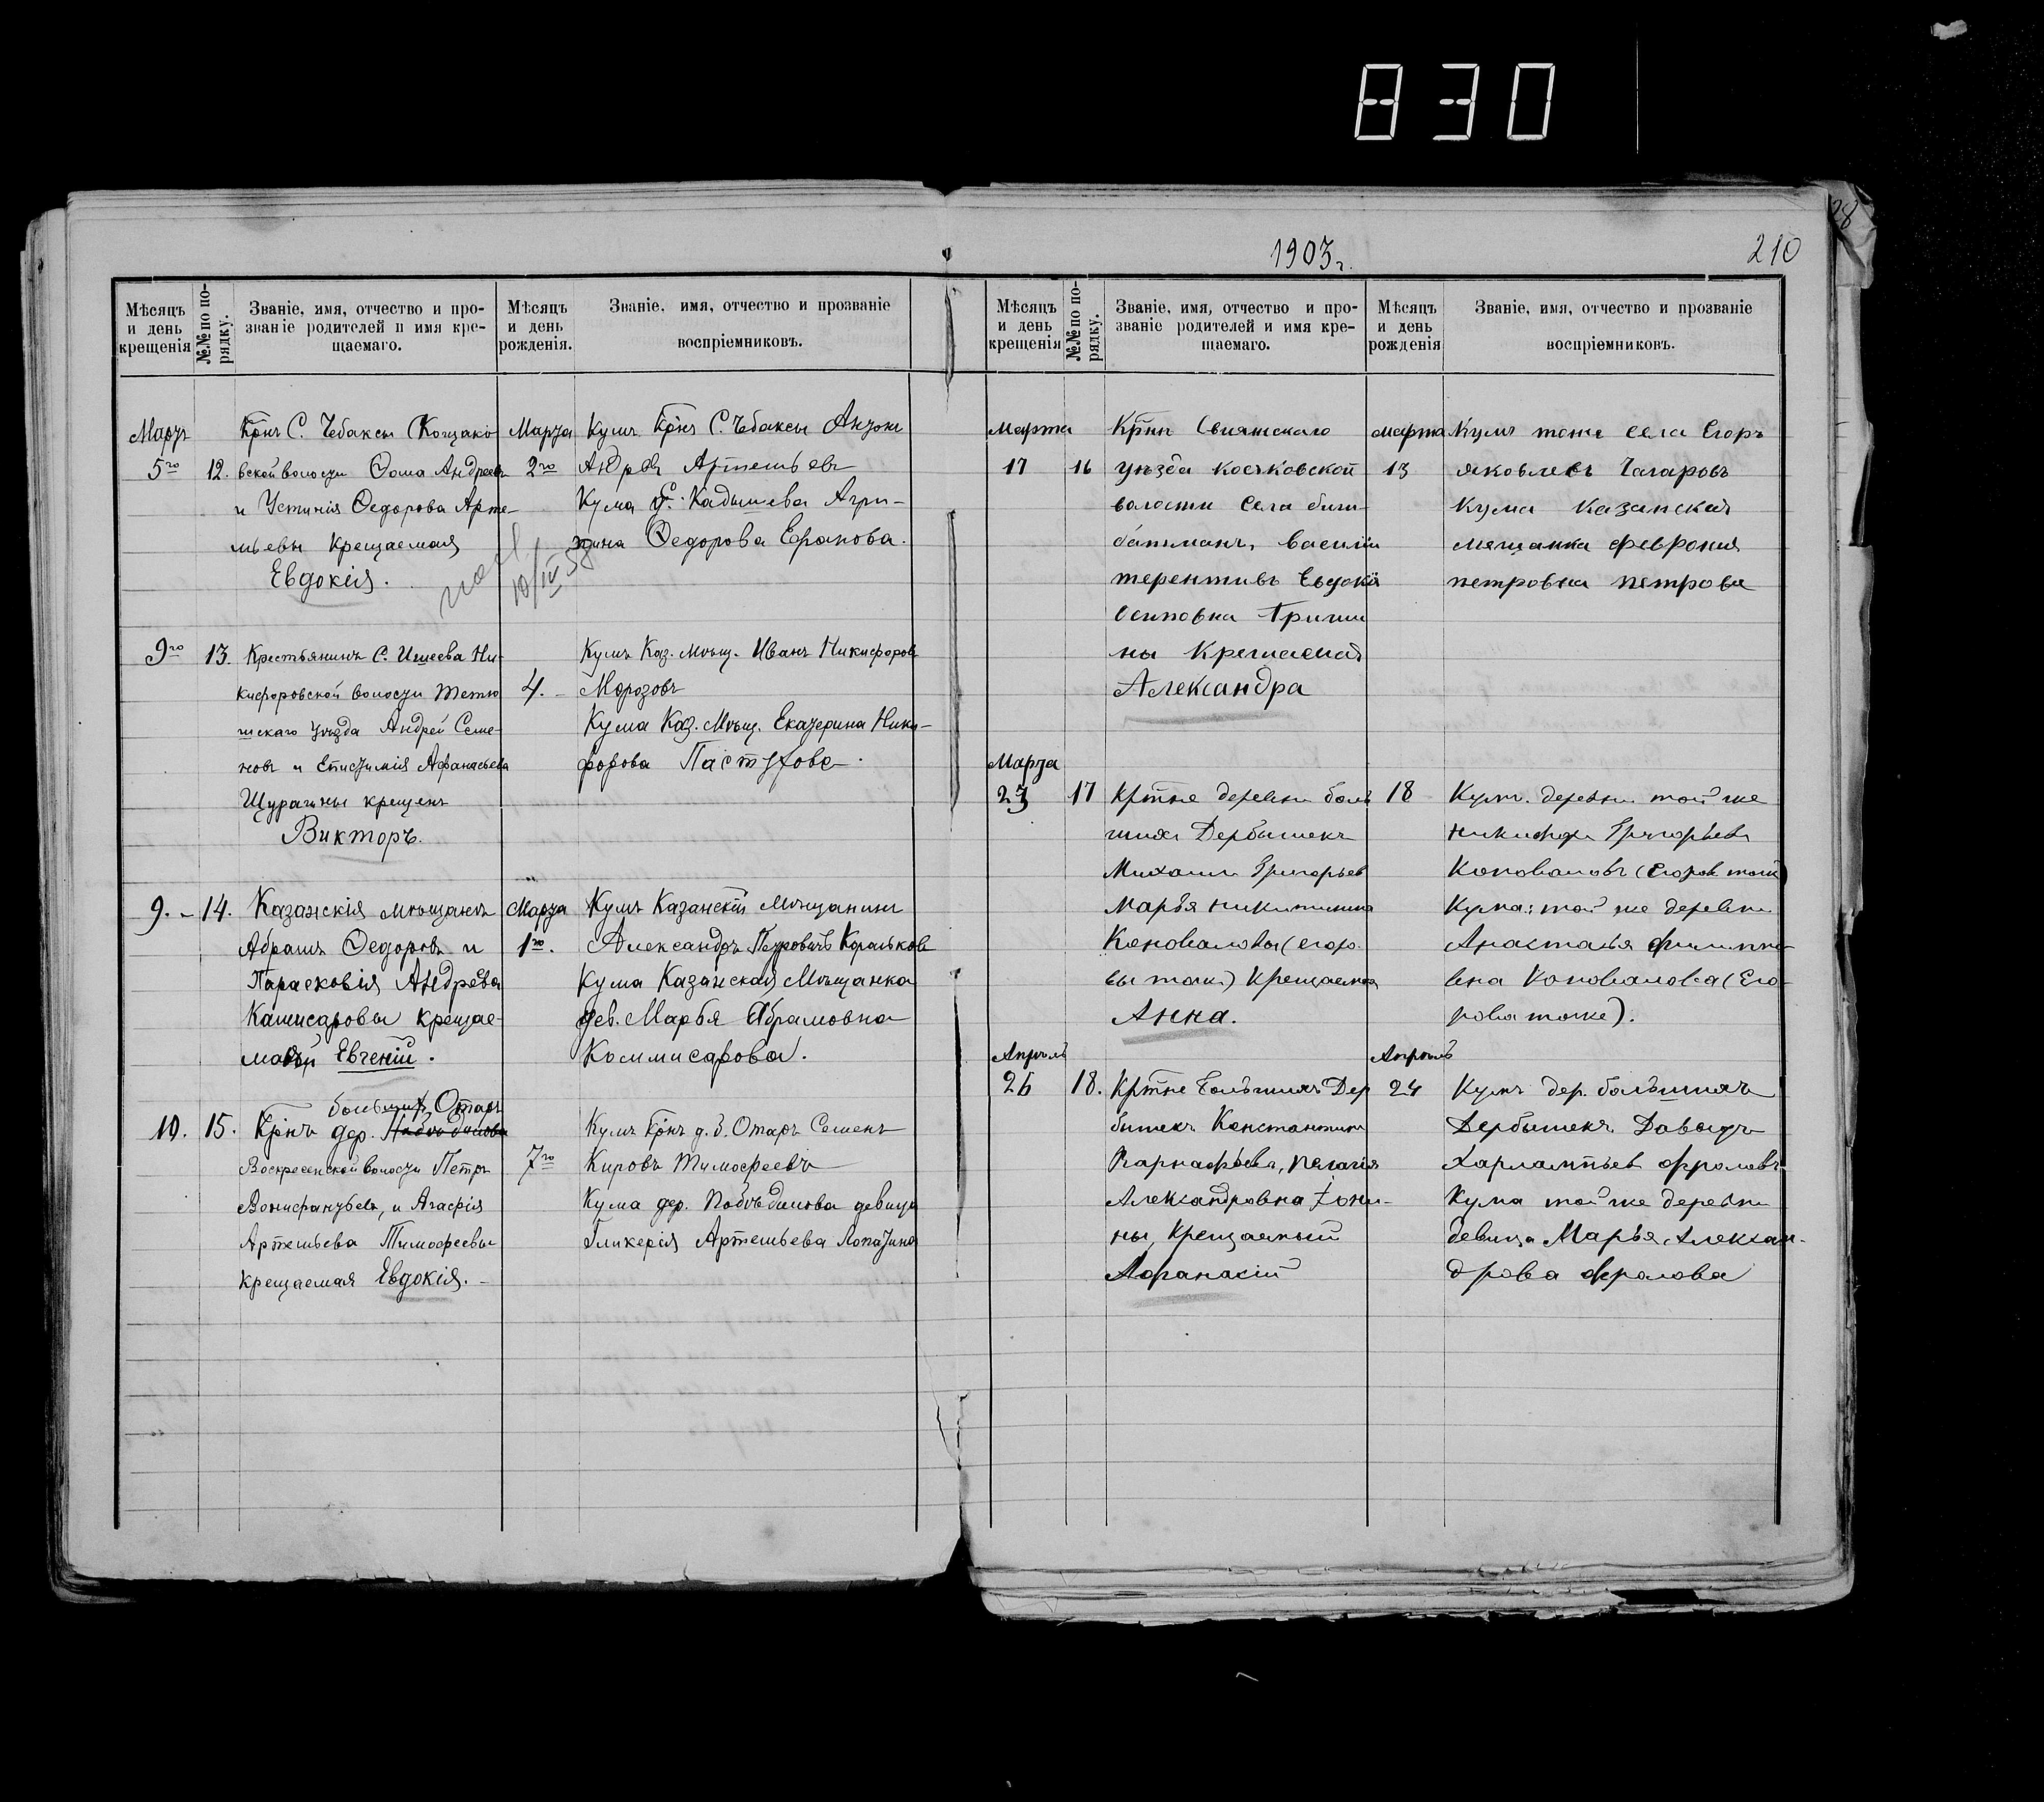 830
28
1903 г.
210
Мѣсяцъ и день крещенія
№№ по порядку.
Званіе, имя, отчество и про-
званіе родителей и имя кре-
щаемаго.
Мѣсяцъ и день рожденія.
Званіе, имя, отчество и прозваніе
воспріемниковъ.
Мартъ
5го
12.
Крнъ С. Чебаксы Кощако
вской волости Ѳома Андреевъ
и Устинія Ѳедорова Арте-
мьевы крещаемая
Евдокія.
Марта
2го
Кумъ Крнъ С. Чебаксы Антонъ
Андр Артемьевъ
Кума Кадышева Агри-
пина Ѳедорова
10/IV 58
9го
13.
Крестьянинъ С. Ишеева Ни-
кифоровской волости Тетю
шскаго уѣзда Андрей Семе-
новъ и Епистимія Афанасьева
крещенъ
Викторъ.
4.
Кумъ Каз. мѣщ. Иванъ Никифоровъ
Морозовъ
Кума Каз. мѣщ. Екатерина Ники-
форова Пастухова.
9.
14.
Казанскія мѣщане
Абрамъ Ѳедоровъ и
Парасковія Андрева
Камисаровы крещае-
мый Евгеній.
Марта
1го.
Кумъ Казанскій Мѣщанинъ
Александръ Петровичъ Корольковъ
Кума Казанская Мѣщанка
дев. Марья Абрамовна
Коммисарова.
10.
15.
большихъ Отаръ
Крнъ дер.
Воскресенской волости Петръ
Вонифантьевъ, и Агафія
Артемьева Тимофеевы
крещаемая Евдокія.
7го
Кумъ Крнъ д. Б. Отаръ Семенъ
Кировъ Тимофеевъ
Кума дер. Победилова девица
Гликерія Артемьева Лопатина
Мѣсяцъ и день крещенія
№№ по порядку.
Званіе, имя, отчество и про-
званіе родителей и имя кре-
щаемаго.
Мѣсяцъ и день рожденія
Званіе, имя, отчество и прозваніе
воспріемниковъ.
Марта
17
16
Крнн Свияжскаго
уѣзда
волости села
василій
терентивъ Евдокія
Осиповна Гриши
ны Крещаемая
Александра
марта
13
Кумъ тоже села Егоръ
яковлевъ Чагаровъ
Кума Казанская
мящанка феврония
петровна петрова
Марта
23
17
Кртне деревни боль
шихъ Дербышекъ
Михаилъ Григорьев
Марья никитишна
Коновалова (егоро
вы тоже) Крещаемая
Анна.
18
Кумъ. деревни той же
никифоръ Григорьевъ
Коноваловъ (егоровъ тоже)
Кума: той же деревни
Анастасья филиппо-
вна Коновалова (Его-
рова тоже).
Апрѣль
26
18.
Кртне большихъ Дер
бышекъ Константинъ
пелагія
Александровна
ны, Крещаемый
Афанасій
Апрѣль
24
Кумъ дер. большихъ
Дербышекъ Давыдъ
Харлампьев фроловъ
Кума той же деревни
девица Марья Алексан-
дрова фролова